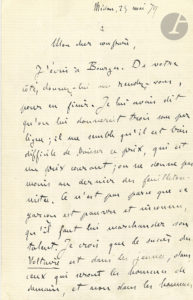 Médan, 23 mai 79
Mon cher confrère,
J'écris à Bourges. De votre
côté, donnez-lui un rendez-vous,
pour en finir. Je lui avais dit
qu'on lui donnerait trois sous par
ligne; il me semble qu'il est très
difficile de baisser ce prix, qui est
un prix courant; on ne donne pas
moins au dernier des feuilleton-
nistes. Ce n'est pas parce que ce
garçon est pauvre et inconnu,
qu'il faut lui marchander son
talent. Je crois que le succès du
Voltaire est dans les jeunes, dans
ceux qui seront les hommes de
demain, et non dans les hommes